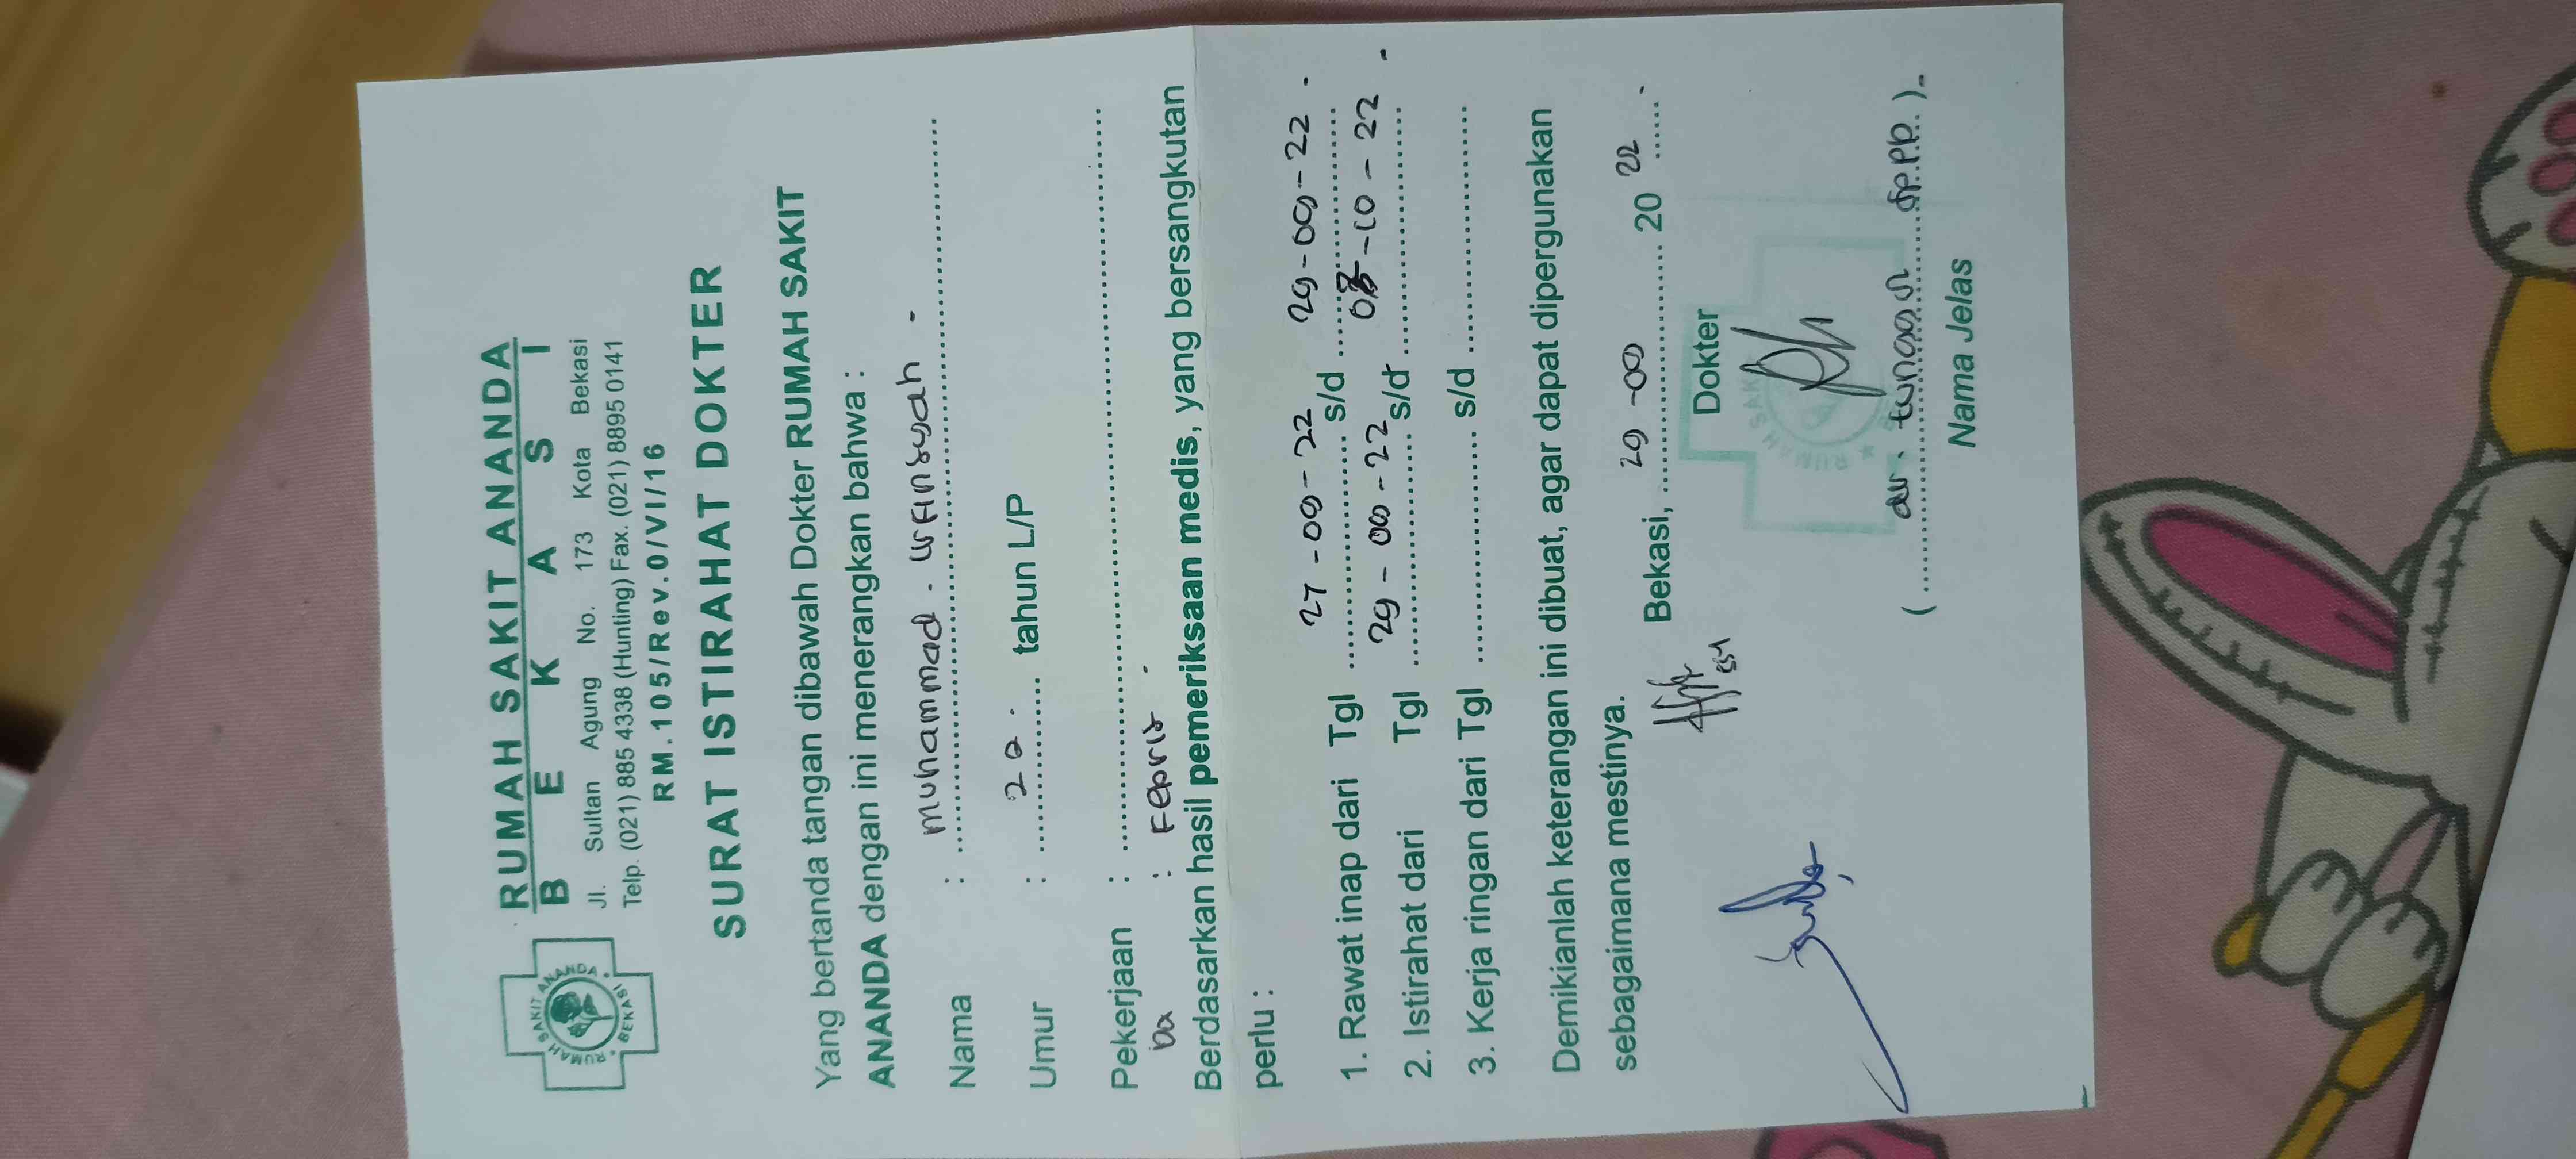 RUMAH SAKIT ANANDA
B E K A S I
Jl. Sultan Agung No. 173 Kota Bekasi
Telp. (021) 885 4338 (Hunting) Fax. (021) 8895 0141
RM.105/Rev.0/VI/16
SURAT ISTIRAHAT DOKTER
Yang bertanda tangan dibawah Dokter RUMAH SAKIT
ANANDA dengan ini menerangkan bahwa :
Nama : Muhammad. Irfinsyah -
Umur : 22. tahun L/P
Pekerjaan :
Dx : Febris.
Berdasarkan hasil pemeriksaan medis, yang bersangkutan
perlu :
1. Rawat inap dari Tgl 27-09-22 s/d 29-09-22.
2. Istirahat dari Tgl 29-09-22 s/d -10-22.
3. Kerja ringan dari Tgl s/d
Demikianlah keterangan ini dibuat, agar dapat dipergunakan
sebagaimana mestinya.
Bekasi, 29-09 20 22
Dokter
RUMAH SAKIT
(dr. Tunggul SpPD.)
Nama Jelas